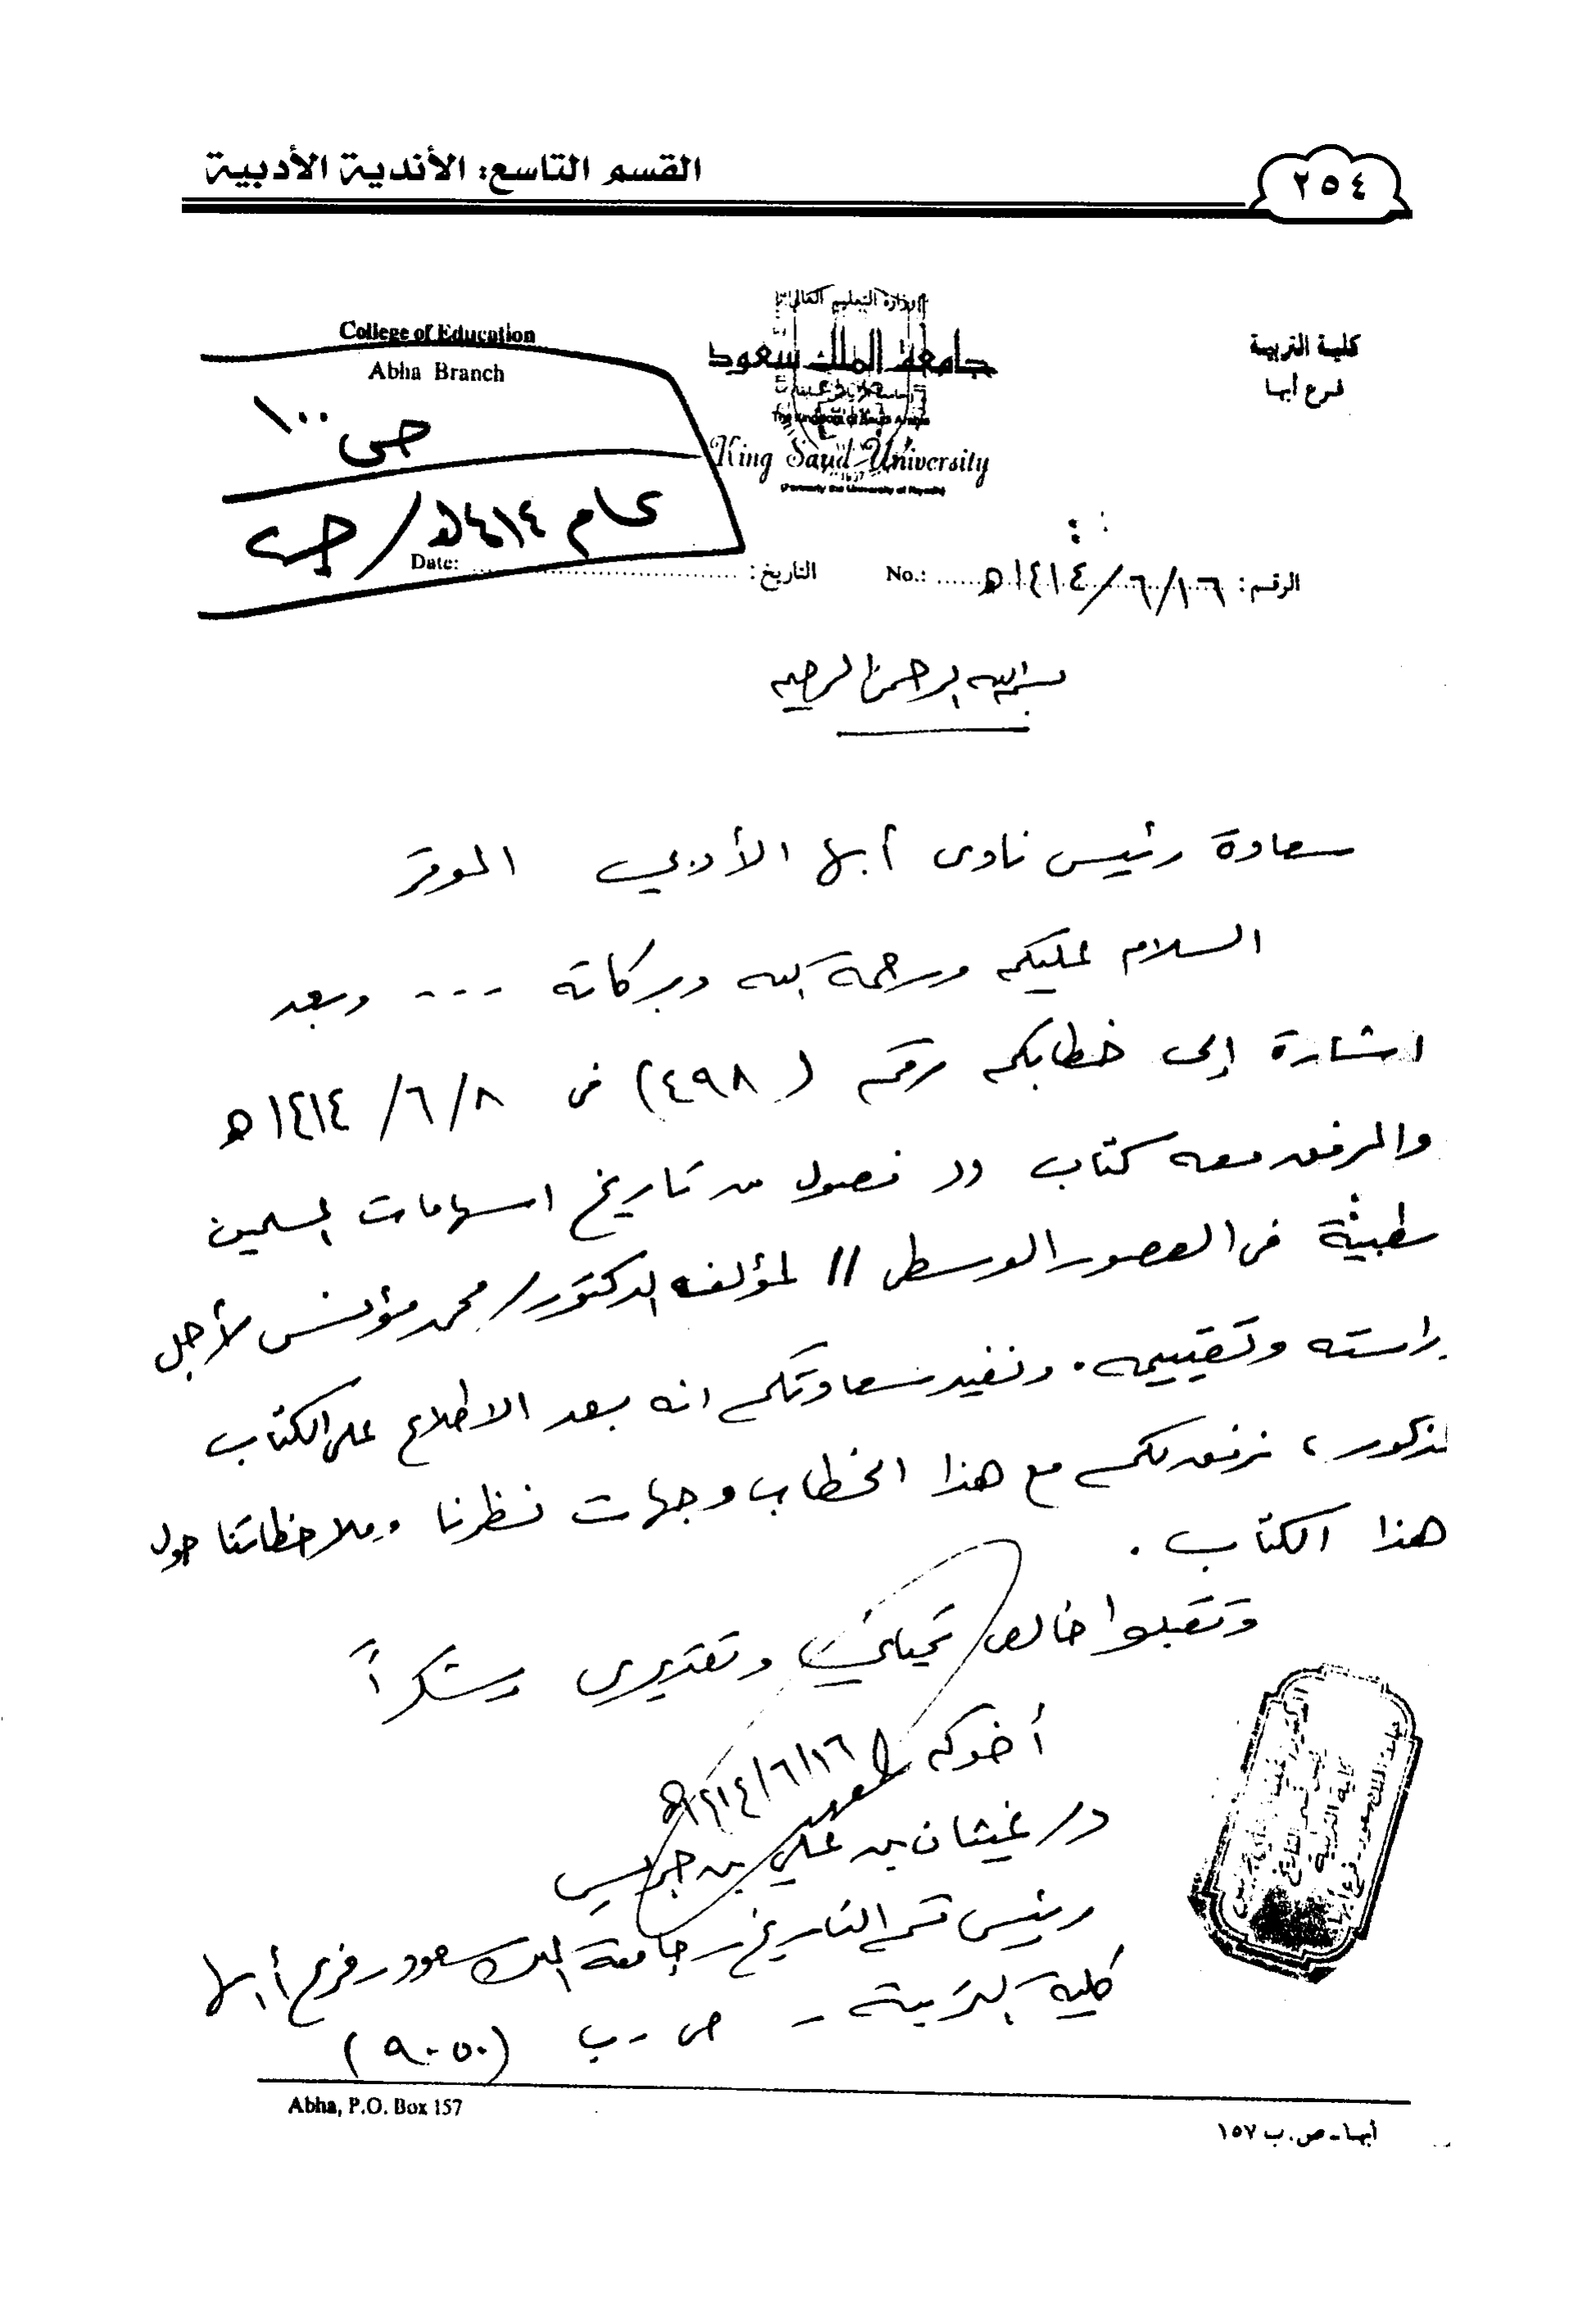 القسم التاسع: الأندية الأدبية
٢٥٤
كلية التربية
فرع أبها
وزارة التعليم العالي
جامعة الملك سعود
King Saud University
(Formerly the University of Riyadh)
College of Education
Abha Branch
ص ١٠٠
عام ١٤١٤هـ /
الرقم: ١٦/ ٦/ ١٤١٤هـ No.:
التاريخ: Date:
بسم الله الرحمن الرحيم
سعادة رئيس نادى أبها الأدبي الموقر
السلام عليكم ورحمة الله وبركاته --- وبعد
اشارة إلى خطابكم رقم (٤٩٨) فى ٨/ ٦/ ١٤١٤هـ
والمرفق معه كتاب " فصول من تاريخ اسهامات المسلمين
الطبية فى العصور الوسطى " لمؤلفه الدكتور/ محمد مؤنس لأجل
دراسته وتقييمه. ونفيد سعادتكم انه بعد الاطلاع على الكتاب
المذكور، نرفق لكم مع هذا الخطاب وجهات نظرنا وملاحظاتنا حول
هذا الكتاب.
وتقبلوا خالص تحياتي وتقديرى وشكراً
أخوكم
١٦/ ٦/ ١٤١٤هـ
د/ غيثان بن علي بن جريس
رئيس قسم التاريخ - جامعة الملك سعود - فرع أبها
كلية التربية - ص - ب (٩٠٥٠)
Abha, P.O. Box 157
أبها - ص. ب ١٥٧